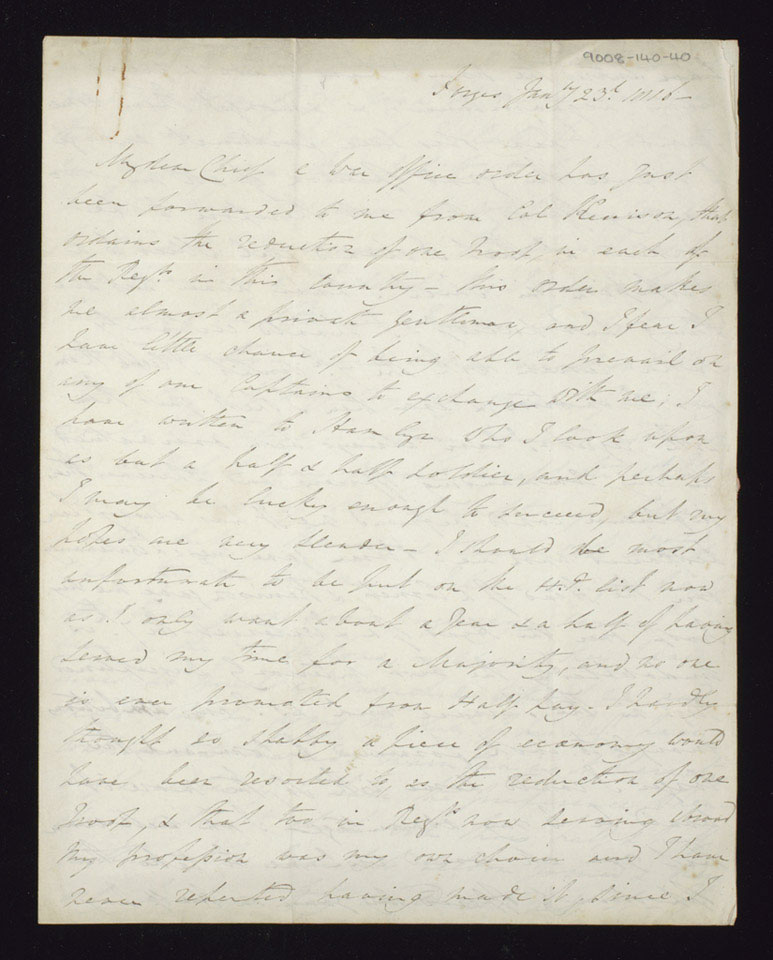 9008-140-40
Jany 23d. 1816 -
My dear Chief a War Office order has just
been forwarded to me from Col Kenison, that
ordains the reduction of one Troop, in each of
the Regts. in this Country - this order makes
me almost a private gentleman, and I fear I
have little chance of being able to prevail on
any of our Captains to exchange with me; I
have written to Hamlyn who I look upon
as but a half & half soldier, and perhaps
I may be lucky enough to succeed, but my
hopes are very slender - I should be most
unfortunate to be put on the H.P. list now
as I only want about a year & a half of having
served my time for a Majority, and no one
is ever promoted from Half Pay - I hardly
thought so shabby a piece of economy would
have been resorted to, as the reduction of one
Troop, & that too in Regts. now serving abroad
My profession was my own choice and I have
never repented having made it, since I